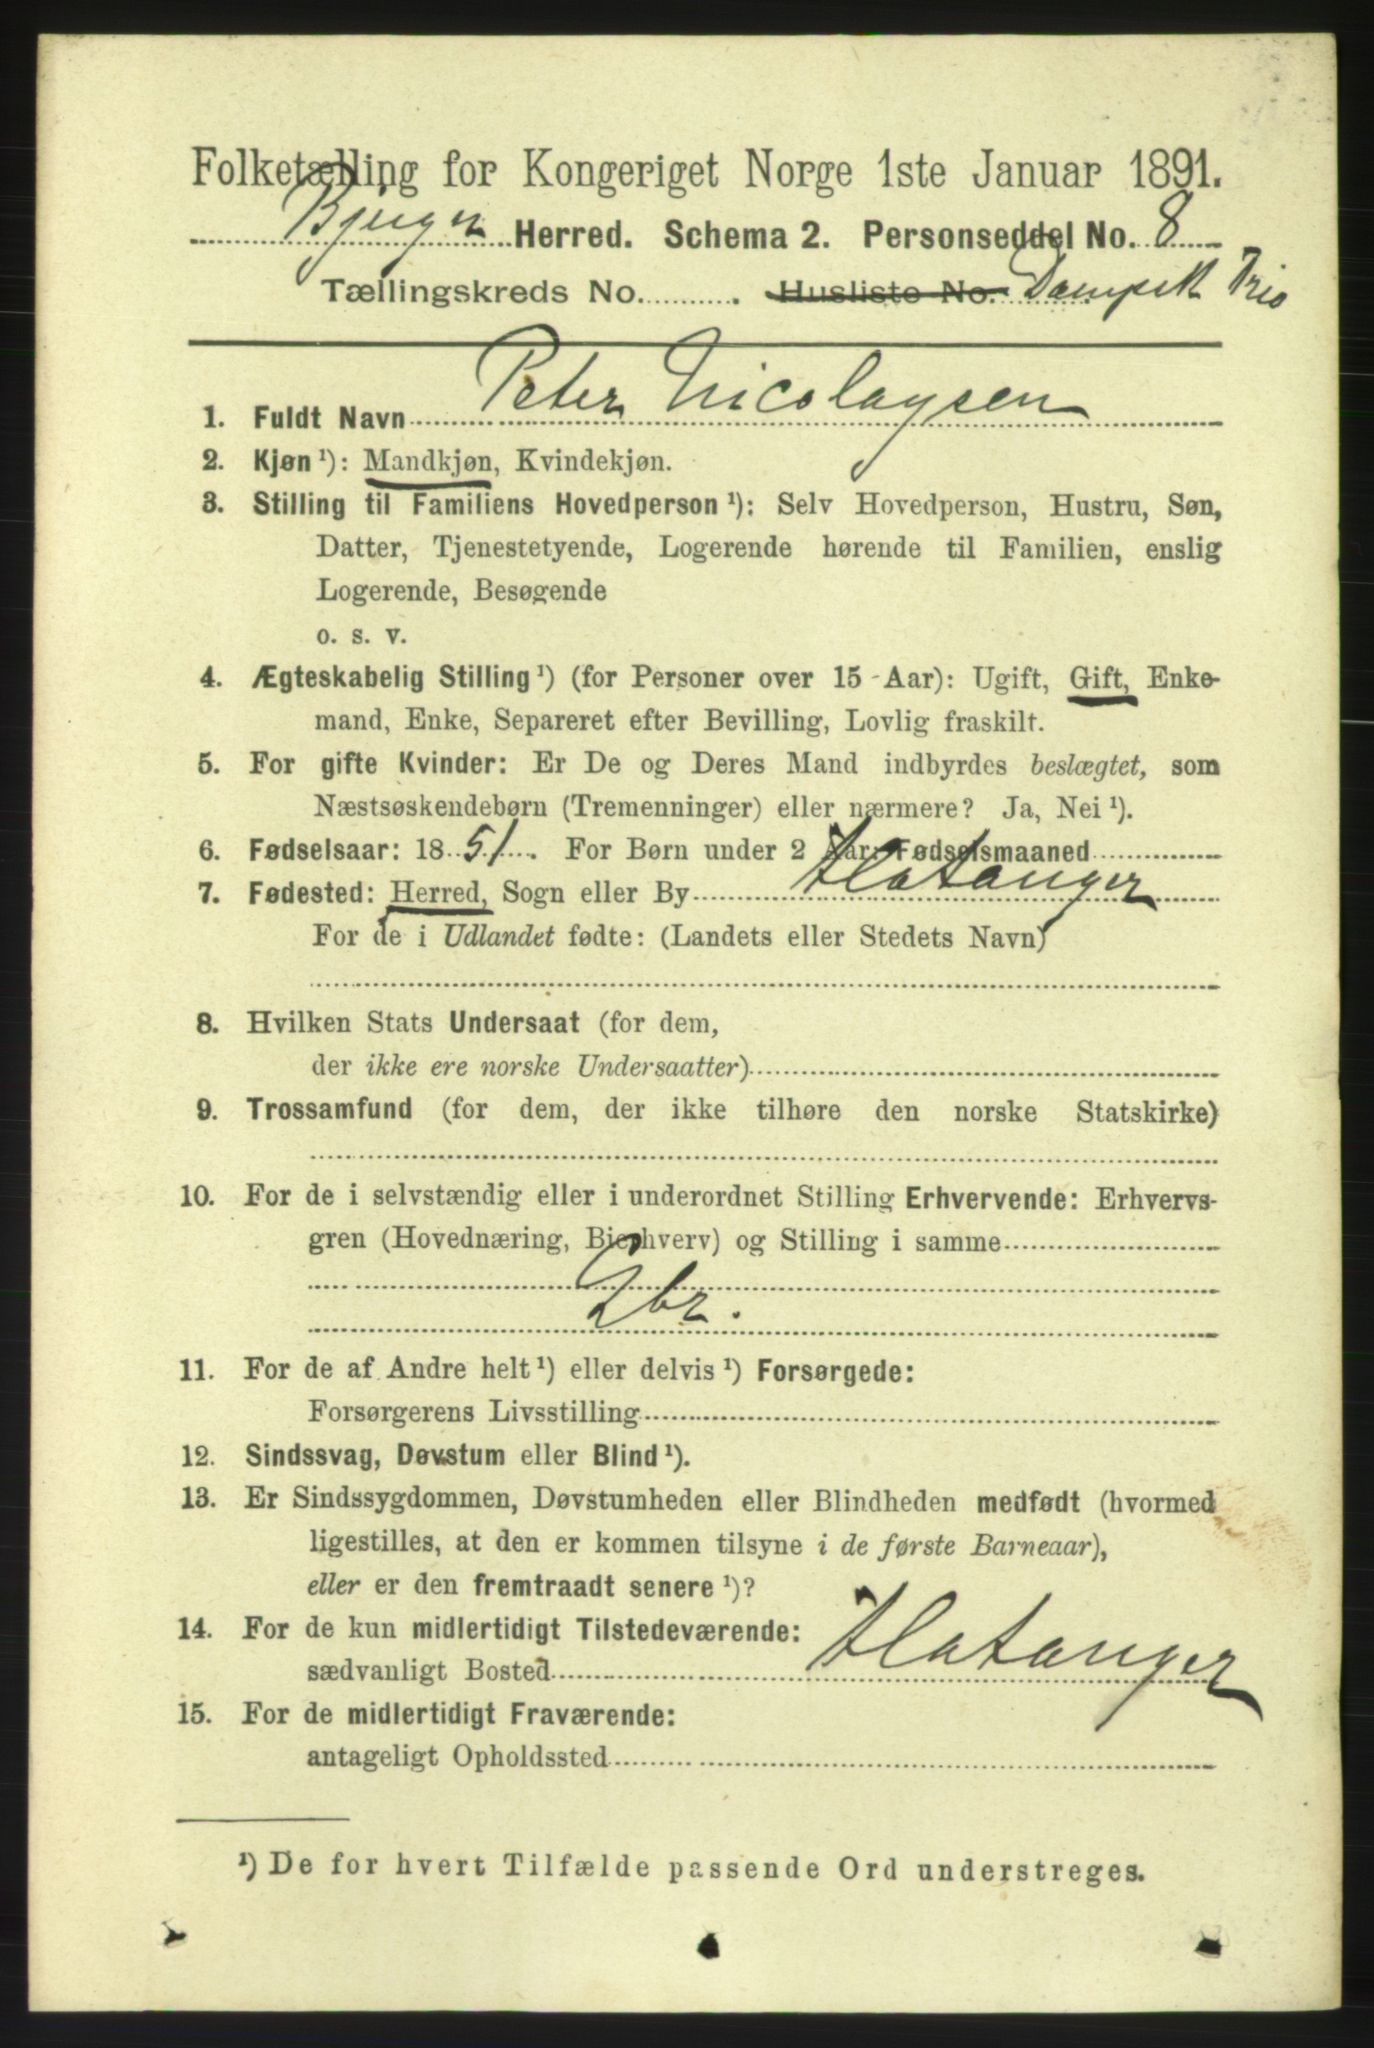 Folketælling for Kongeriget Norge 1ste Januar 1891.
Bjugn Herred. Schema 2. Personseddel No. 8
Tællingskreds No. . Husliste No. Dampsk Trio
1. Fuldt Navn Peter Nicolaysen
2. Kjøn ¹): Mandkjøn, Kvindekjøn.
3. Stilling til Familiens Hovedperson ¹): Selv Hovedperson, Hustru, Søn,
Datter, Tjenestetyende, Logerende hørende til Familien, enslig
Logerende, Besøgende
o. s. v.
4. Ægteskabelig Stilling ¹) (for Personer over 15 Aar): Ugift, Gift, Enke-
mand, Enke, Separeret efter Bevilling, Lovlig fraskilt.
5. For gifte Kvinder: Er De og Deres Mand indbyrdes beslægtet, som
Næstsøskendebørn (Tremenninger) eller nærmere? Ja, Nei ¹).
6. Fødselsaar: 1851. For Børn under 2 Aar: Fødselsmaaned
7. Fødested: Herred, Sogn eller By Flatanger
For de i Udlandet fødte: (Landets eller Stedets Navn)
8. Hvilken Stats Undersaat (for dem,
der ikke ere norske Undersaatter)
9. Trossamfund (for dem, der ikke tilhøre den norske Statskirke)
10. For de i selvstændig eller i underordnet Stilling Erhvervende: Erhvervs-
gren (Hovednæring, Bierhverv) og Stilling i samme
Gbr.
11. For de af Andre helt ¹) eller delvis ¹) Forsørgede:
Forsørgerens Livsstilling
12. Sindssvag, Døvstum eller Blind ¹).
13. Er Sindssygdommen, Døvstumheden eller Blindheden medfødt (hvormed
ligestilles, at den er kommen tilsyne i de første Barneaar),
eller er den fremtraadt senere ¹)?
14. For de kun midlertidigt Tilstedeværende:
sædvanligt Bosted Flatanger
15. For de midlertidigt Fraværende:
antageligt Opholdssted
¹) De for hvert Tilfælde passende Ord understreges.